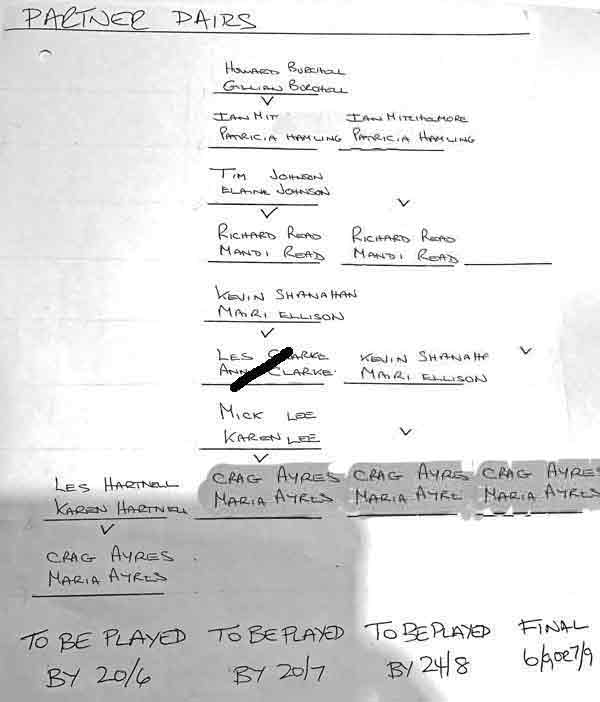 PARTNER PAIRS
HOWARD BURCHELL
GILLIAN BURCHELL
V
IAN MIT
PATRICIA HAMLING
IAN MITCHELMORE
PATRICIA HAMLING
TIM JOHNSON
ELAINE JOHNSON
V
V
RICHARD READ
MANDI READ
RICHARD READ
MANDI READ
KEVIN SHANAHAN
MAIRI ELLISON
V
V
LES CLARKE
ANN CLARKE
KEVIN SHANAHA
MAIRI ELLISON
MICK LEE
KAREN LEE
V
V
LES HARTNELL
KAREN HARTNELL
V
CRAG AYRES
MARIA AYRES
CRAG AYRES
MARIA AYRES
CRAG AYRES
MARIA AYRE
CRAG AYRES
MARIA AYRES
TO BE PLAYED
BY 20/6
TO BE PLAYED
BY 20/7
TO BE PLAYED
BY 24/8
FINAL
6/9 OR 7/9